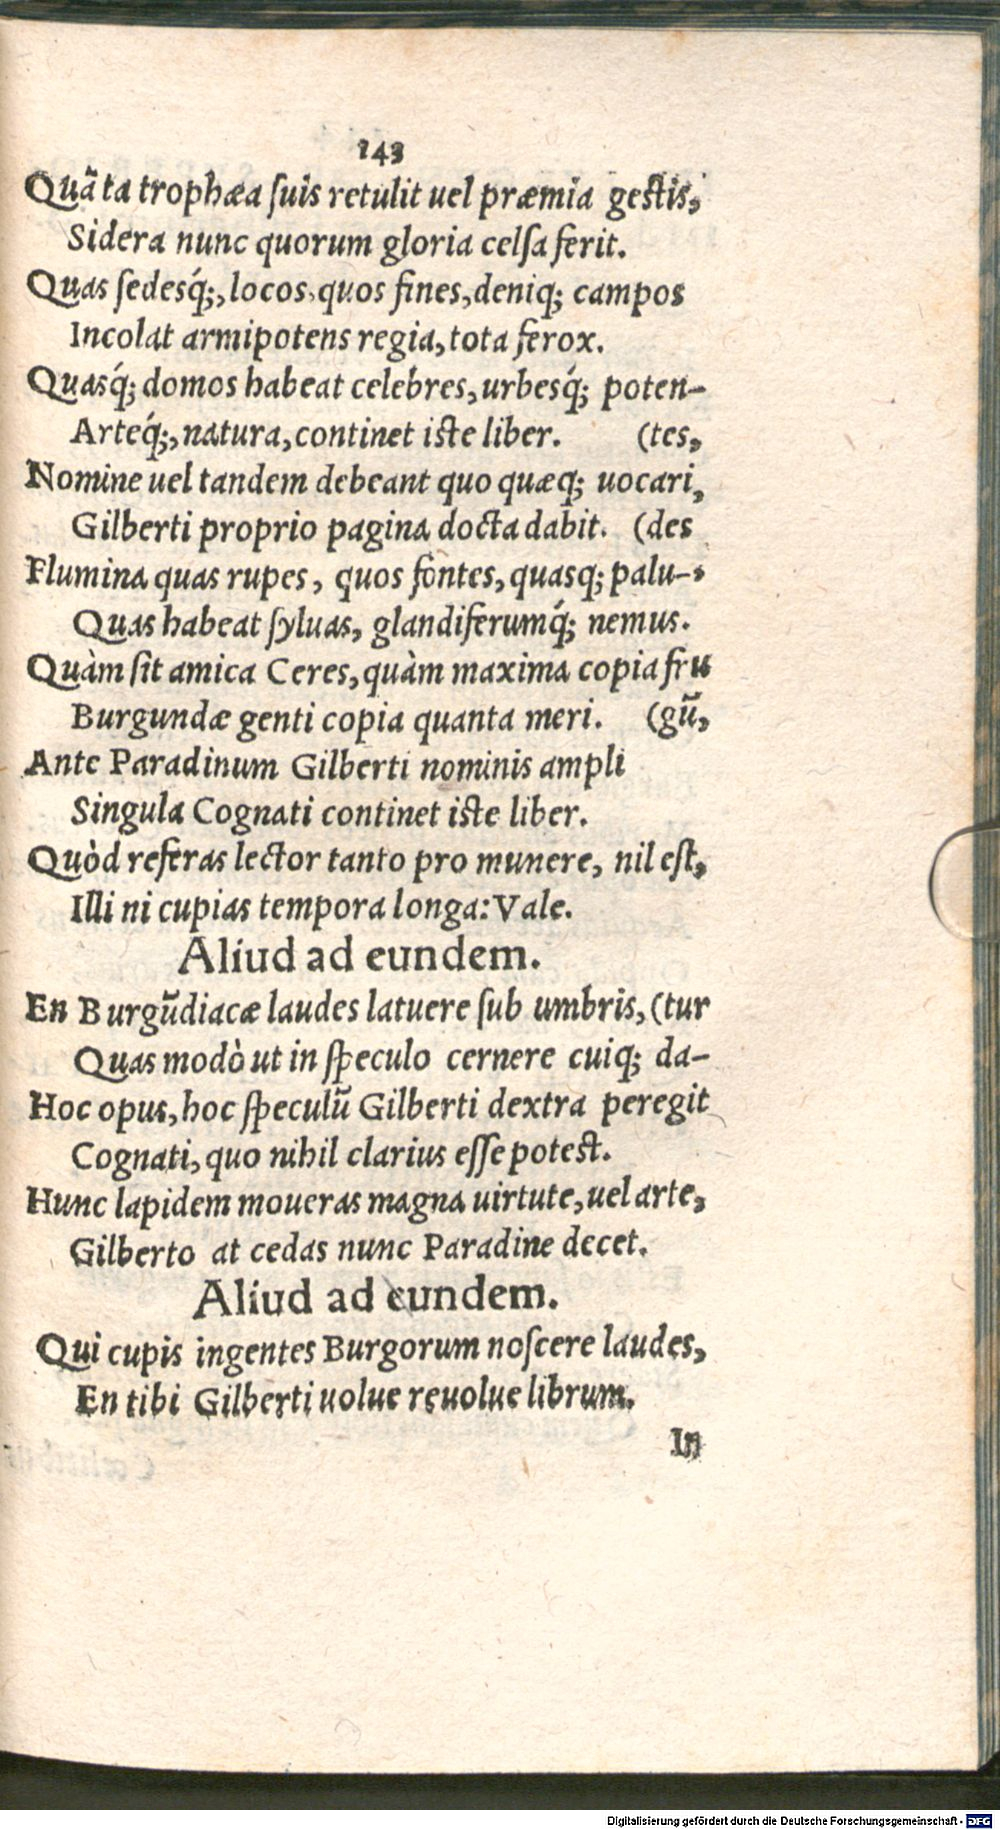 143
Quãta trophæa ſuis retulit uel præmia geſtis,
Sidera nunc quorum gloria celſa ferit.
Quas ſedesq́;, locos, quos fines, deniq; campos
Incolat armipotens regia, tota ferox.
Quasq́; domos habeat celebres, urbesq́; poten-
Arteq́;, natura, continet iſte liber. (tes,
Nomine uel tandem debeant quo quæq; uocari,
Gilberti proprio pagina docta dabit. (des
Flumina quas rupes, quos fontes, quasq; palu-
Quas habeat ſyluas, glandiferumq́; nemus.
Quàm ſit amica Ceres, quàm maxima copia fru
Burgundæ genti copia quanta meri. (gũ,
Ante Paradinum Gilberti nominis ampli
Singula Cognati continet iſte liber.
Quòd referas lector tanto pro munere, nil eſt,
Illi ni cupias tempora longa: Vale.
Aliud ad eundem.
En Burgũdiacæ laudes latuere ſub umbris, (tur
Quas modò ut in ſpeculo cernere cuiq; da-
Hoc opus, hoc ſpeculũ Gilberti dextra peregit
Cognati, quo nihil clarius eſſe poteſt.
Hunc lapidem moueras magna uirtute, uel arte,
Gilberto at cedas nunc Paradine decet.
Aliud ad eundem.
Qui cupis ingentes Burgorum noſcere laudes,
En tibi Gilberti uolue reuolue librum.
In
Digitalisierung gefördert durch die Deutsche Forschungsgemeinschaft - DFG